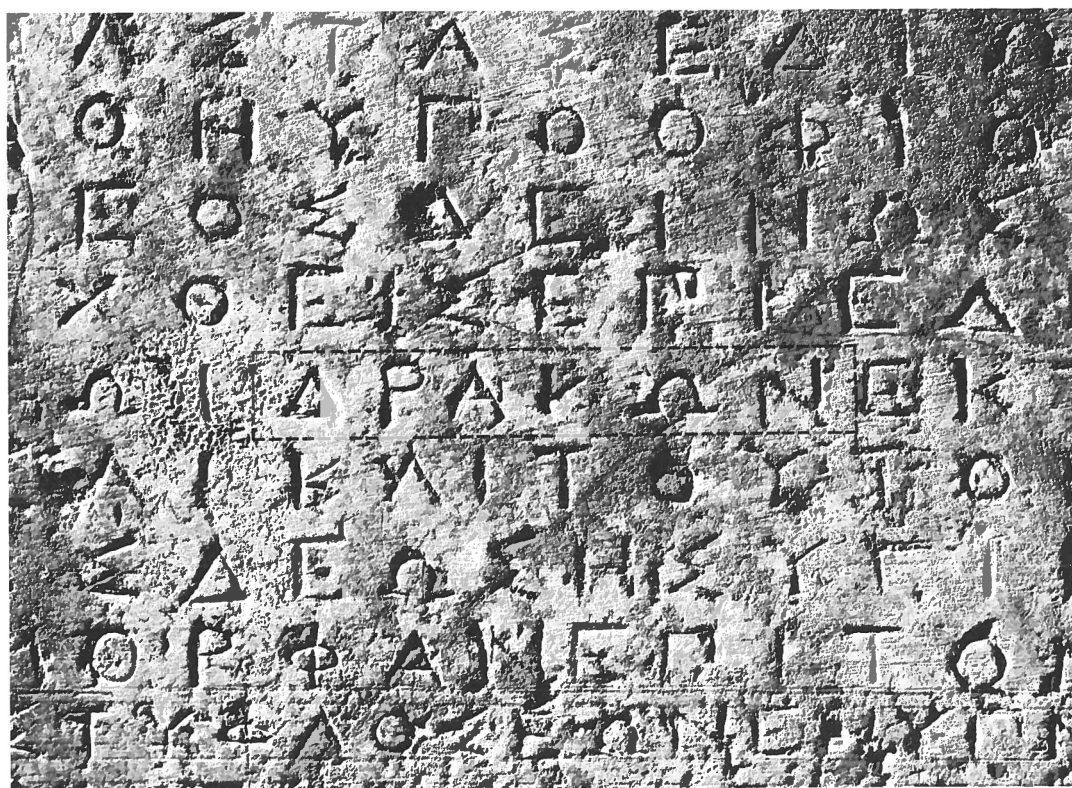 ΑΣΤΑΣΕΔΙΩ
ΘΗΥΠΟΟΦΙΟ
ΕΟΣΔΕΙΝΩΣ
ΧΘΕΙΣΕΠΙΕΔ
ΩΙΔΡΑΚΩΝΕΚ
ΑΙΚΑΙΤΟΥΤΟ
ΣΔΕΩΣΗΣΥΓΙ
ΜΟΡΦΑΝΕΠΙΤΩ
ΣΤΥΦΛΟΣΕΩΝΕΝΥΠΝ